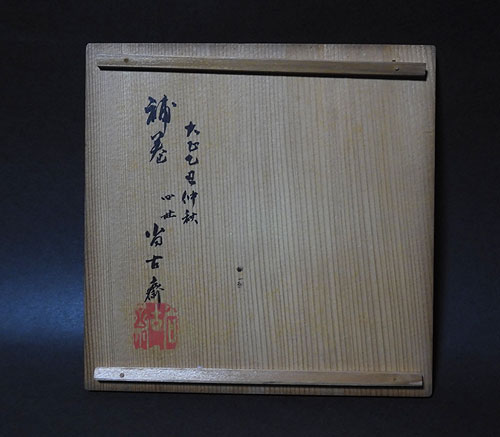 大正乙丑仲秋
補蓋
四世 尚古齋